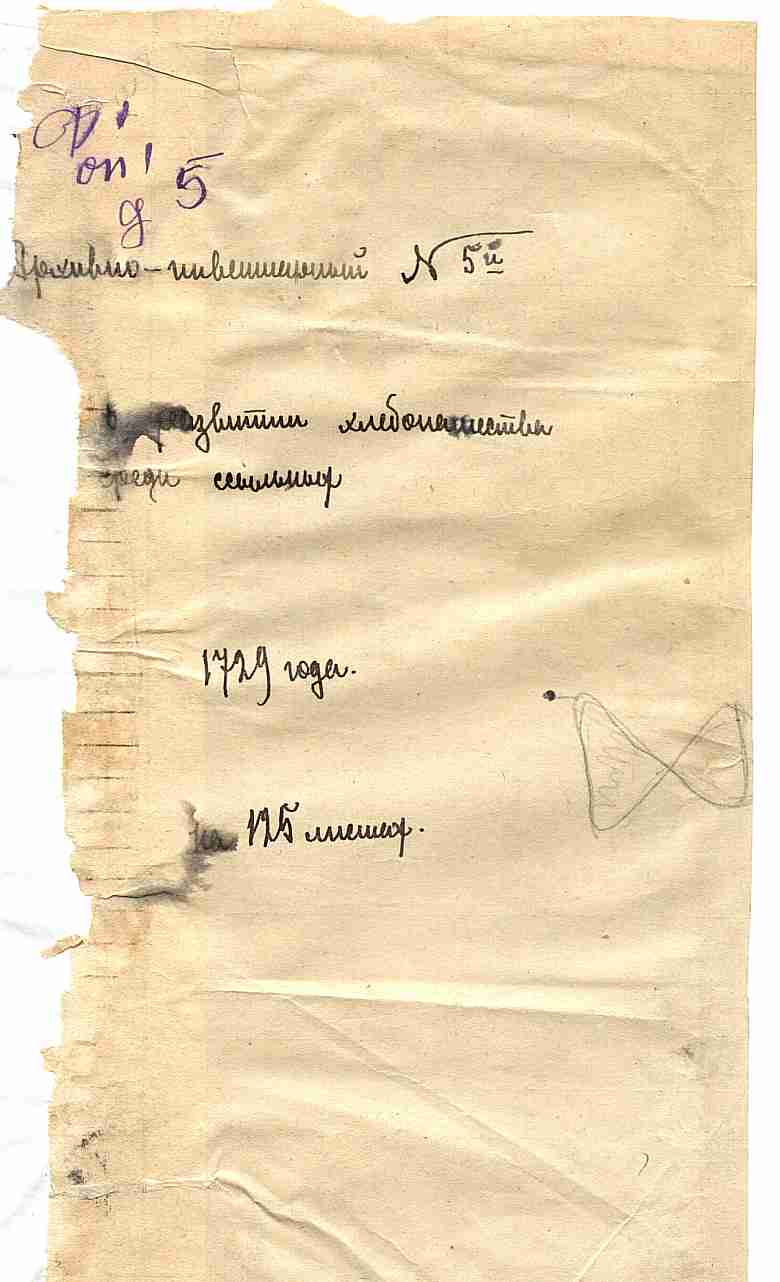 Ф 1
оп 1
д 5
Архивно-инвентарный № 5й
о развитии хлебопашества
среди ссыльных
1729 года.
на 125 листах.